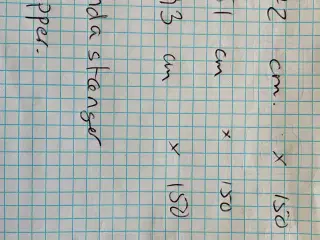 2 cm. x 150
1 cm x 150
3 cm x 150
nda stenger
pper.